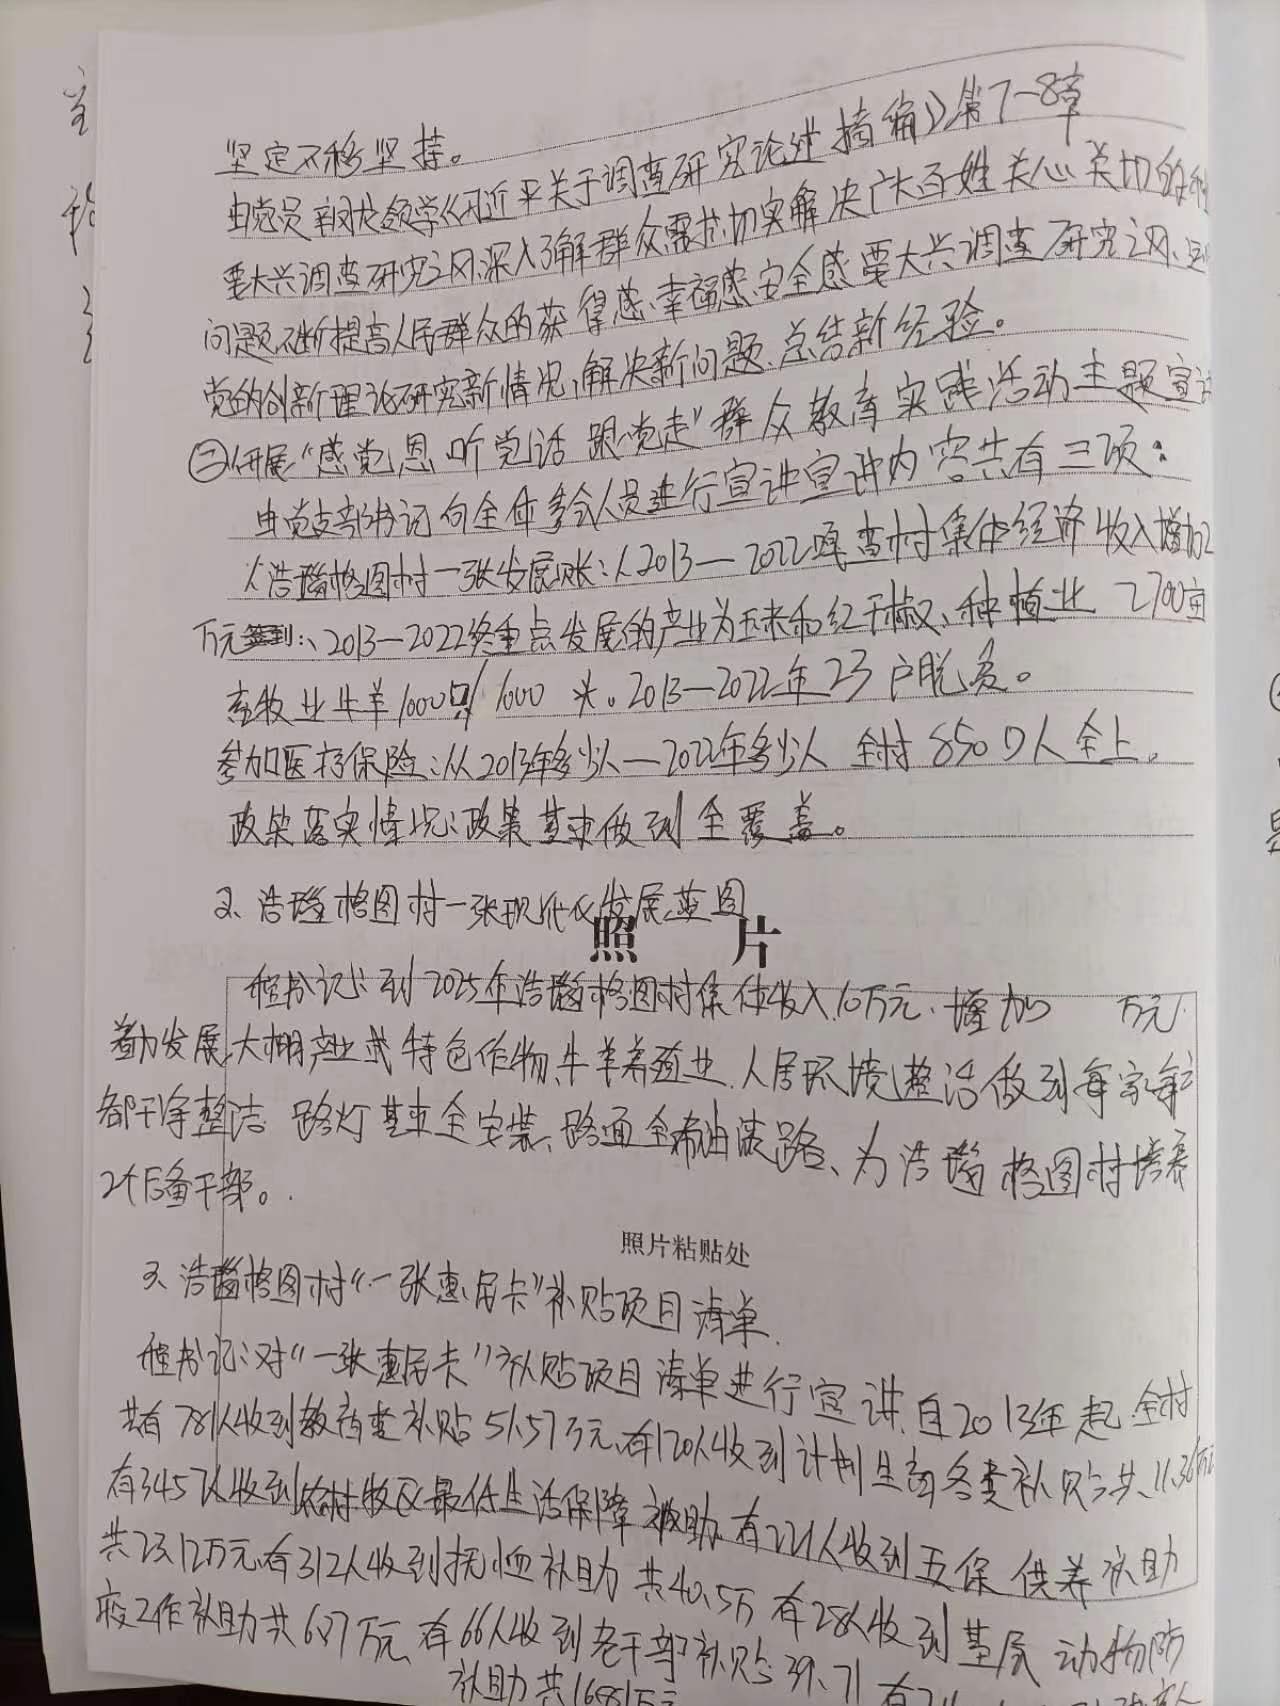 坚定不移坚持。
由党员 领学《习近平关于调查研究论述摘编》第7—8章
要大兴调查研究之风,深入了解群众需求,切实解决广大百姓关心关切的
问题,不断提高人民群众的获得感、幸福感、安全感要大兴调查研究之风、
党的创新理论研究新情况、解决新问题、总结新经验。
㊁开展“感党恩 听党话 跟党走”群众教育实践活动主题宣讲
由党支部书记向全体参会人员进行宣讲宣讲内容共有三项:
1、浩瑙格图村一张发展账:从2013—2022嘎查村集体经济收入增加2
万元 2013—2022终重点发展的产业为玉米和红干椒、种植业 2700亩
畜牧业牛羊1000只/1000 头。2013—2022年23户脱贫。
参加医疗保险:从2013年多少人—2022年多少人 全村850口人全上。
政策落实情况:政策基本做到全覆盖。
2、浩瑙格图村一张现代化发展蓝图
照 片
书记:到2025年浩瑙格图村集体收入10万元.增加 万元.
着力发展大棚产业或特色作物、牛羊养殖业.人居环境整洁做到每家每户
都干净整洁 路灯基本全安装、路面全 油漆路、为浩瑙格图村培养
2个后备干部。
照片粘贴处
3、浩瑙格图村“一张惠民卡”补贴项目清单.
书记:对“一张惠民卡”补贴项目清单进行宣讲.自2013年起 全村
共有781人收到教育类补贴51.57万元.有120人收到计划生育各类补贴共11.36万元
有3457人收到农村牧区最低生活保障救助.有221人收到五保供养补助
共23.12万元.有312人收到抚恤补助 共40.5万 有28人收到基层动物防
疫工作补助共6.87万元.有66人收到老干部补贴39.71 有
补助共16.81万元